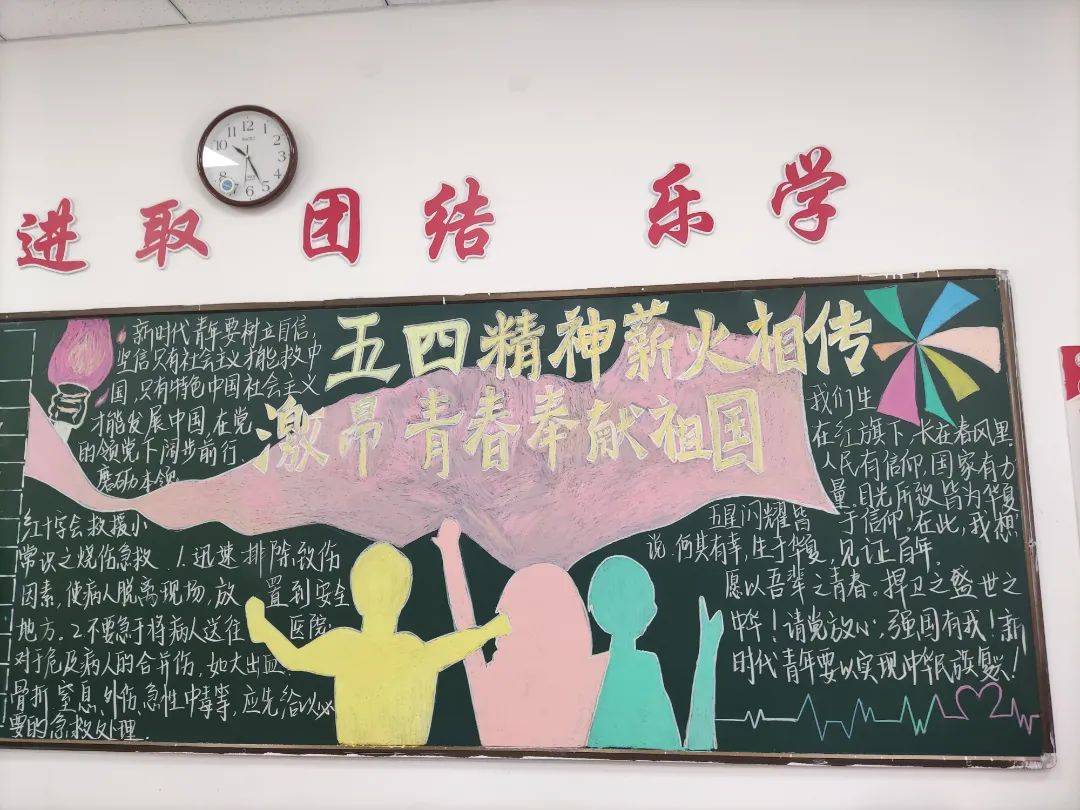 12
1
2
3
4
5
6
10
11
进取 团结 乐学
五四精神薪火相传
激昂青春奉献祖国
新时代青年要树立自信,
坚信只有社会主义才能救中
国,只有特色中国社会主义
才能发展中国,在党
的领党下阔步前行,
磨砺本领
红十字会救援小
常识之烧伤急救 1.迅速排除致伤
因素,使病人脱离现场,放置到安全
地方。2.不要急于将病人送往医院;
对于危及病人的合并伤,如大出血
骨折、窒息、外伤、急性中毒等,应先给以必
要的急救处理.
我们生
在红旗下,长在春风里
人民有信仰,国家有力
量。目光所致皆为华夏
五星闪耀皆于信仰。在此,我想
说:何其有幸,生于华夏,见证百年.
愿以吾辈之青春。捍卫之盛世之
中华!请党放心,强国有我!新
时代青年要以实现中华民族复兴!